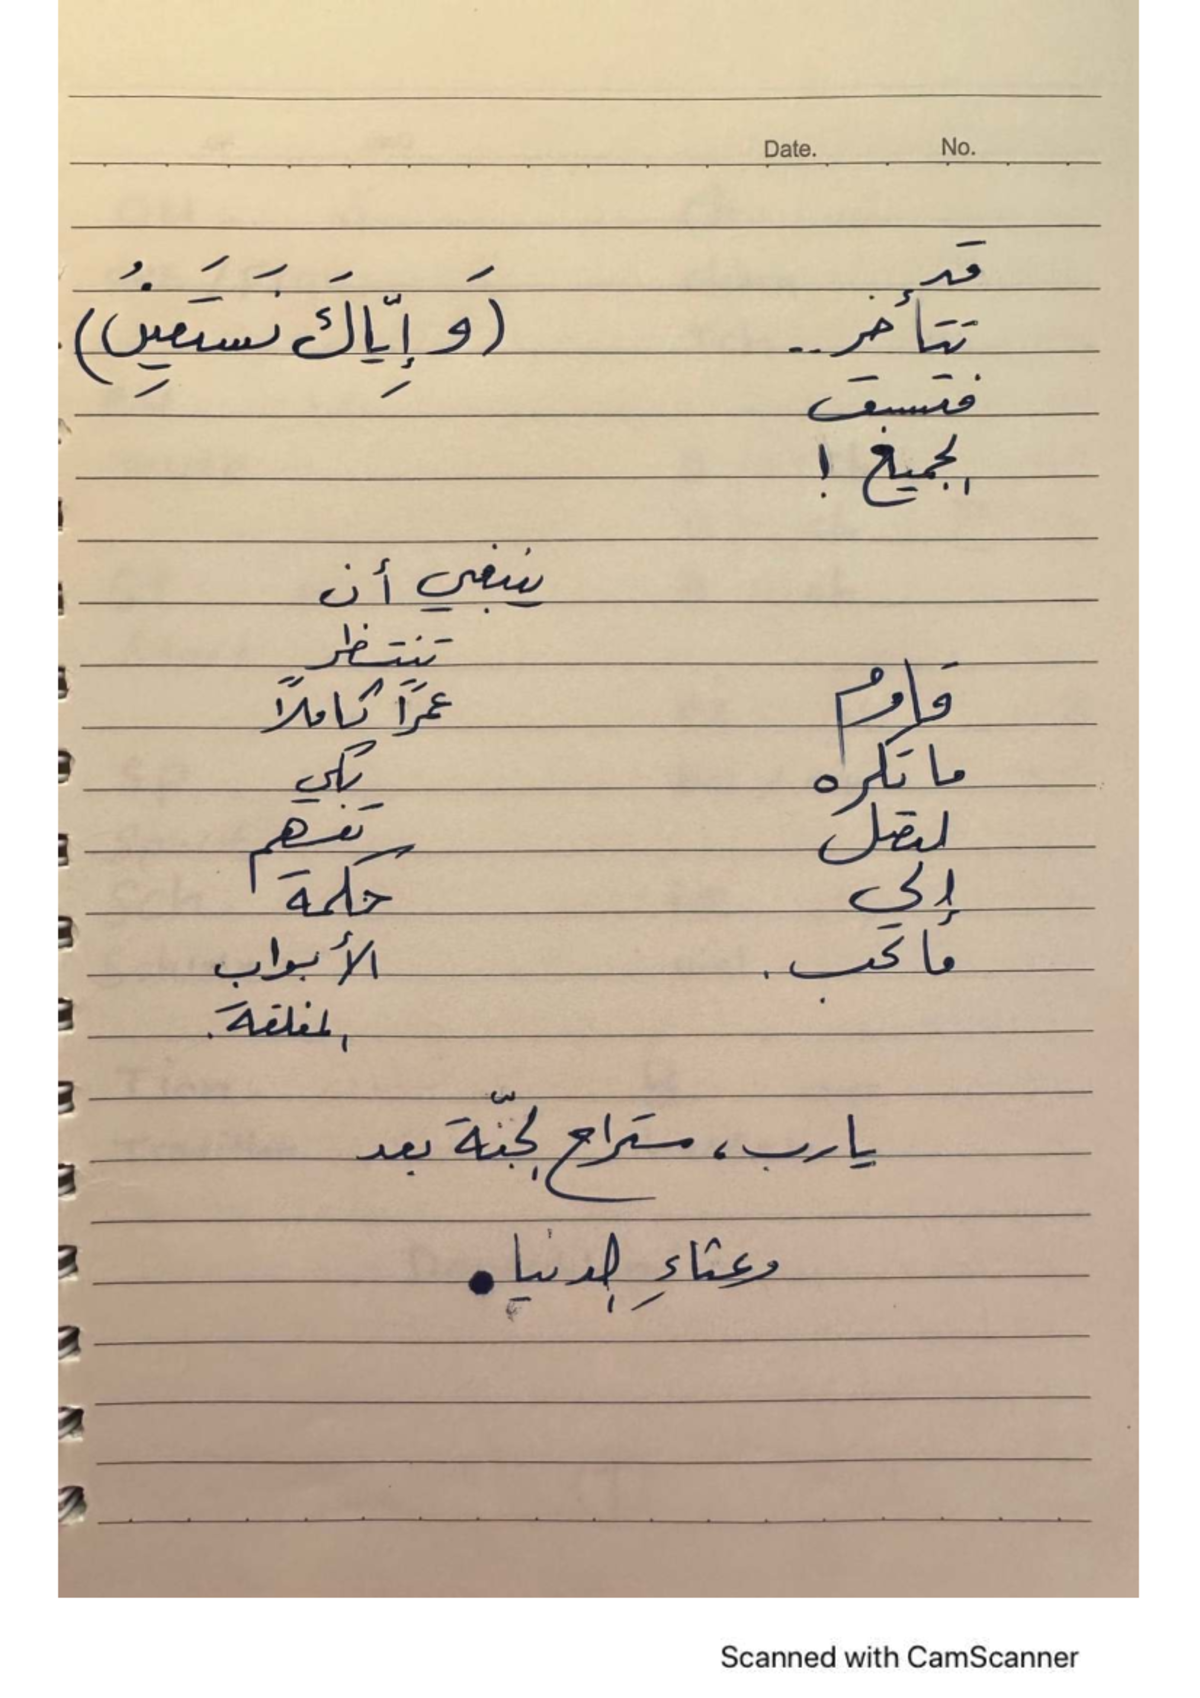 Date. No.
قد
تتأخر..
فتسبق
الجميع !
(وَ إِيّاكَ نَستَعِينُ)
ينبغي أن
تنتظر
عمرًا كاملًا
لكي
تفهم
حكمة
الأبواب
المغلقة.
قاوم
ما تكره
لتصل
إلى
ما تحب.
يا رب، مستراح الجنّة بعد
وعثاءِ الدنيا.
Scanned with CamScanner